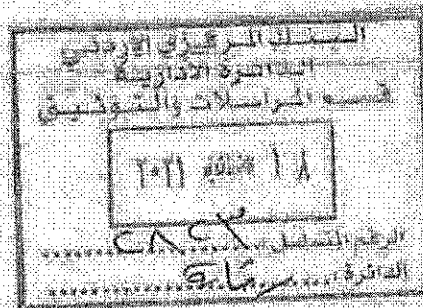 البنك المركزي الأردني
الدائرة الادارية
قسم المراسلات والتوثيق
١٨ ٢٠٢١
الرقم المتسلسل
الدائرة